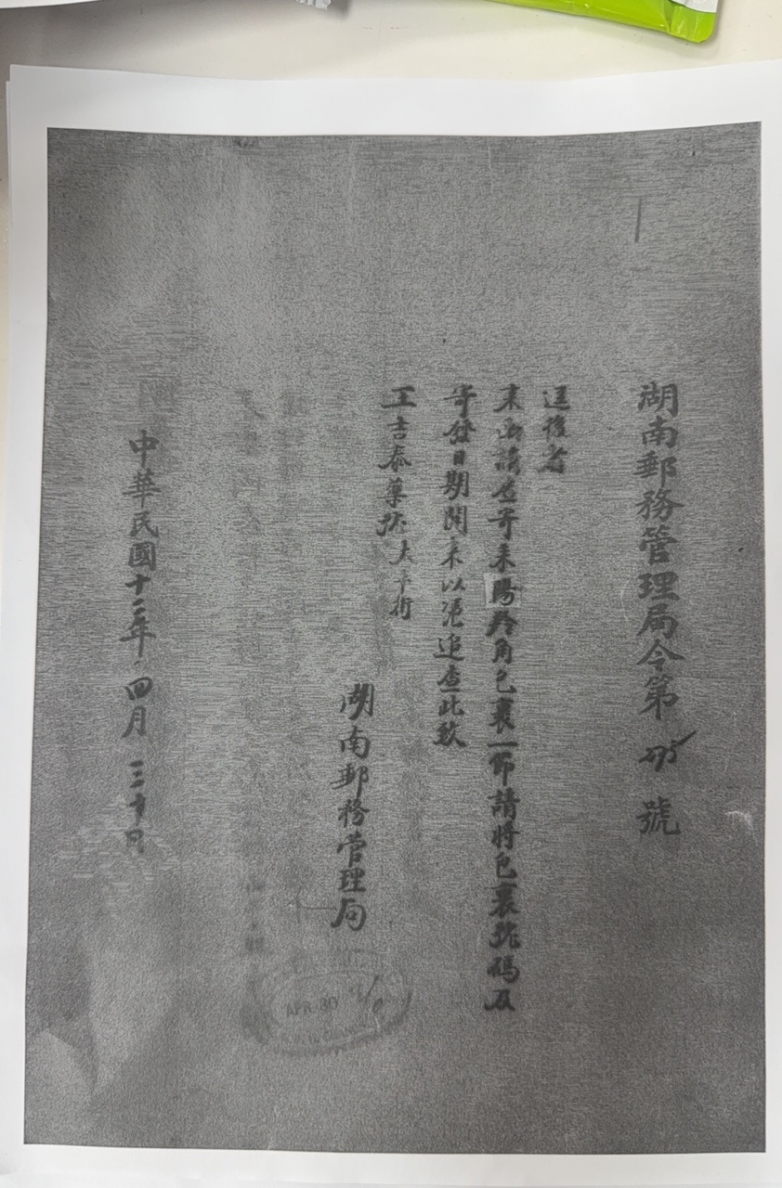 湖南郵務管理局令第 號
逕復者
來函請查寄來羚角包裹一節請將包裹號碼及
寄發日期開來以憑追查此致
王吉泰藥號太平街
湖南郵務管理局
中華民國十二年四月三十日
APR 30